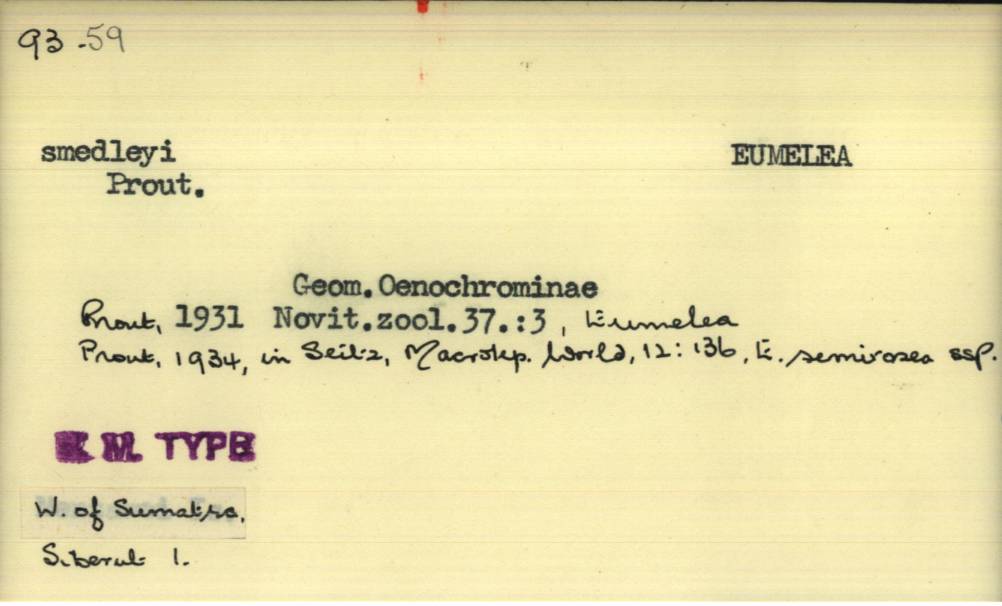 93-59
smedleyi EUMELEA
Prout.
Geom.Oenochrominae
Prout, 1931 Novit.zool.37.:3, Eumelea
Prout, 1934, in Seitz, Macrolep. World, 12: 136, E. semirosea ssp.
B M. TYPE
W. of Sumatra,
Siberut I.